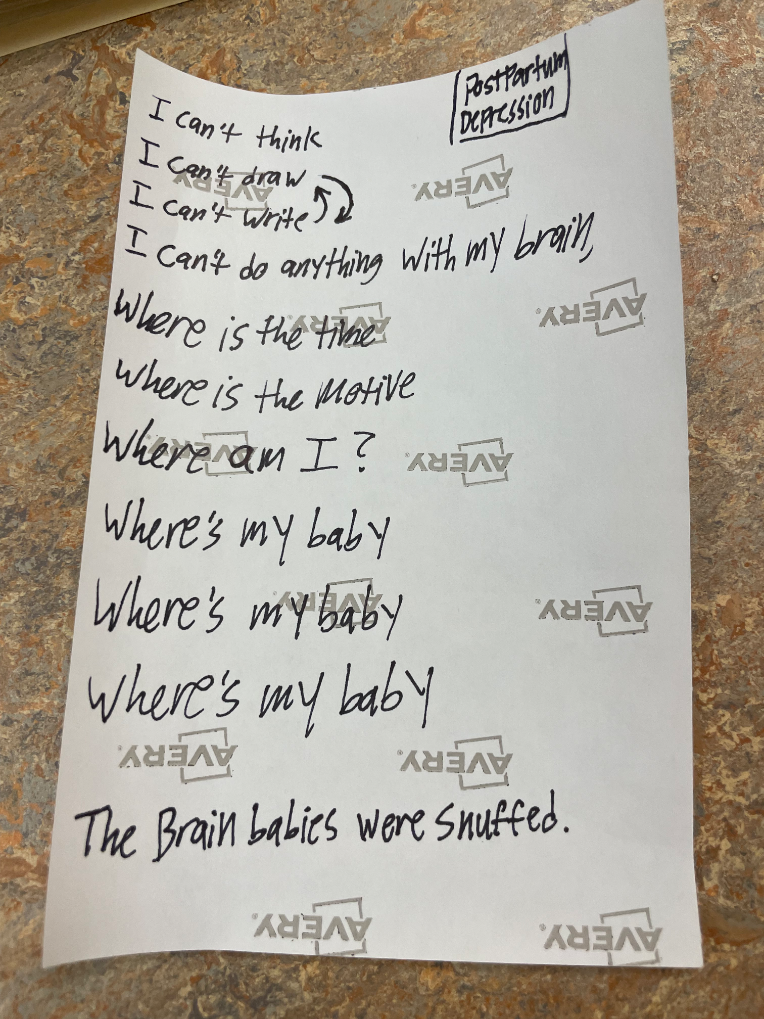 PostPartum
Depression
I can't think
I can't draw
I can't write
I can't do anything with my brain,
Where is the time
Where is the motive
Where am I?
Where's my baby
Where's my baby
Where's my baby
The Brain babies were snuffed.
AVERY
AVERY
AVERY
AVERY
AVERY
AVERY
AVERY
AVERY
AVERY
AVERY
AVERY
AVERY